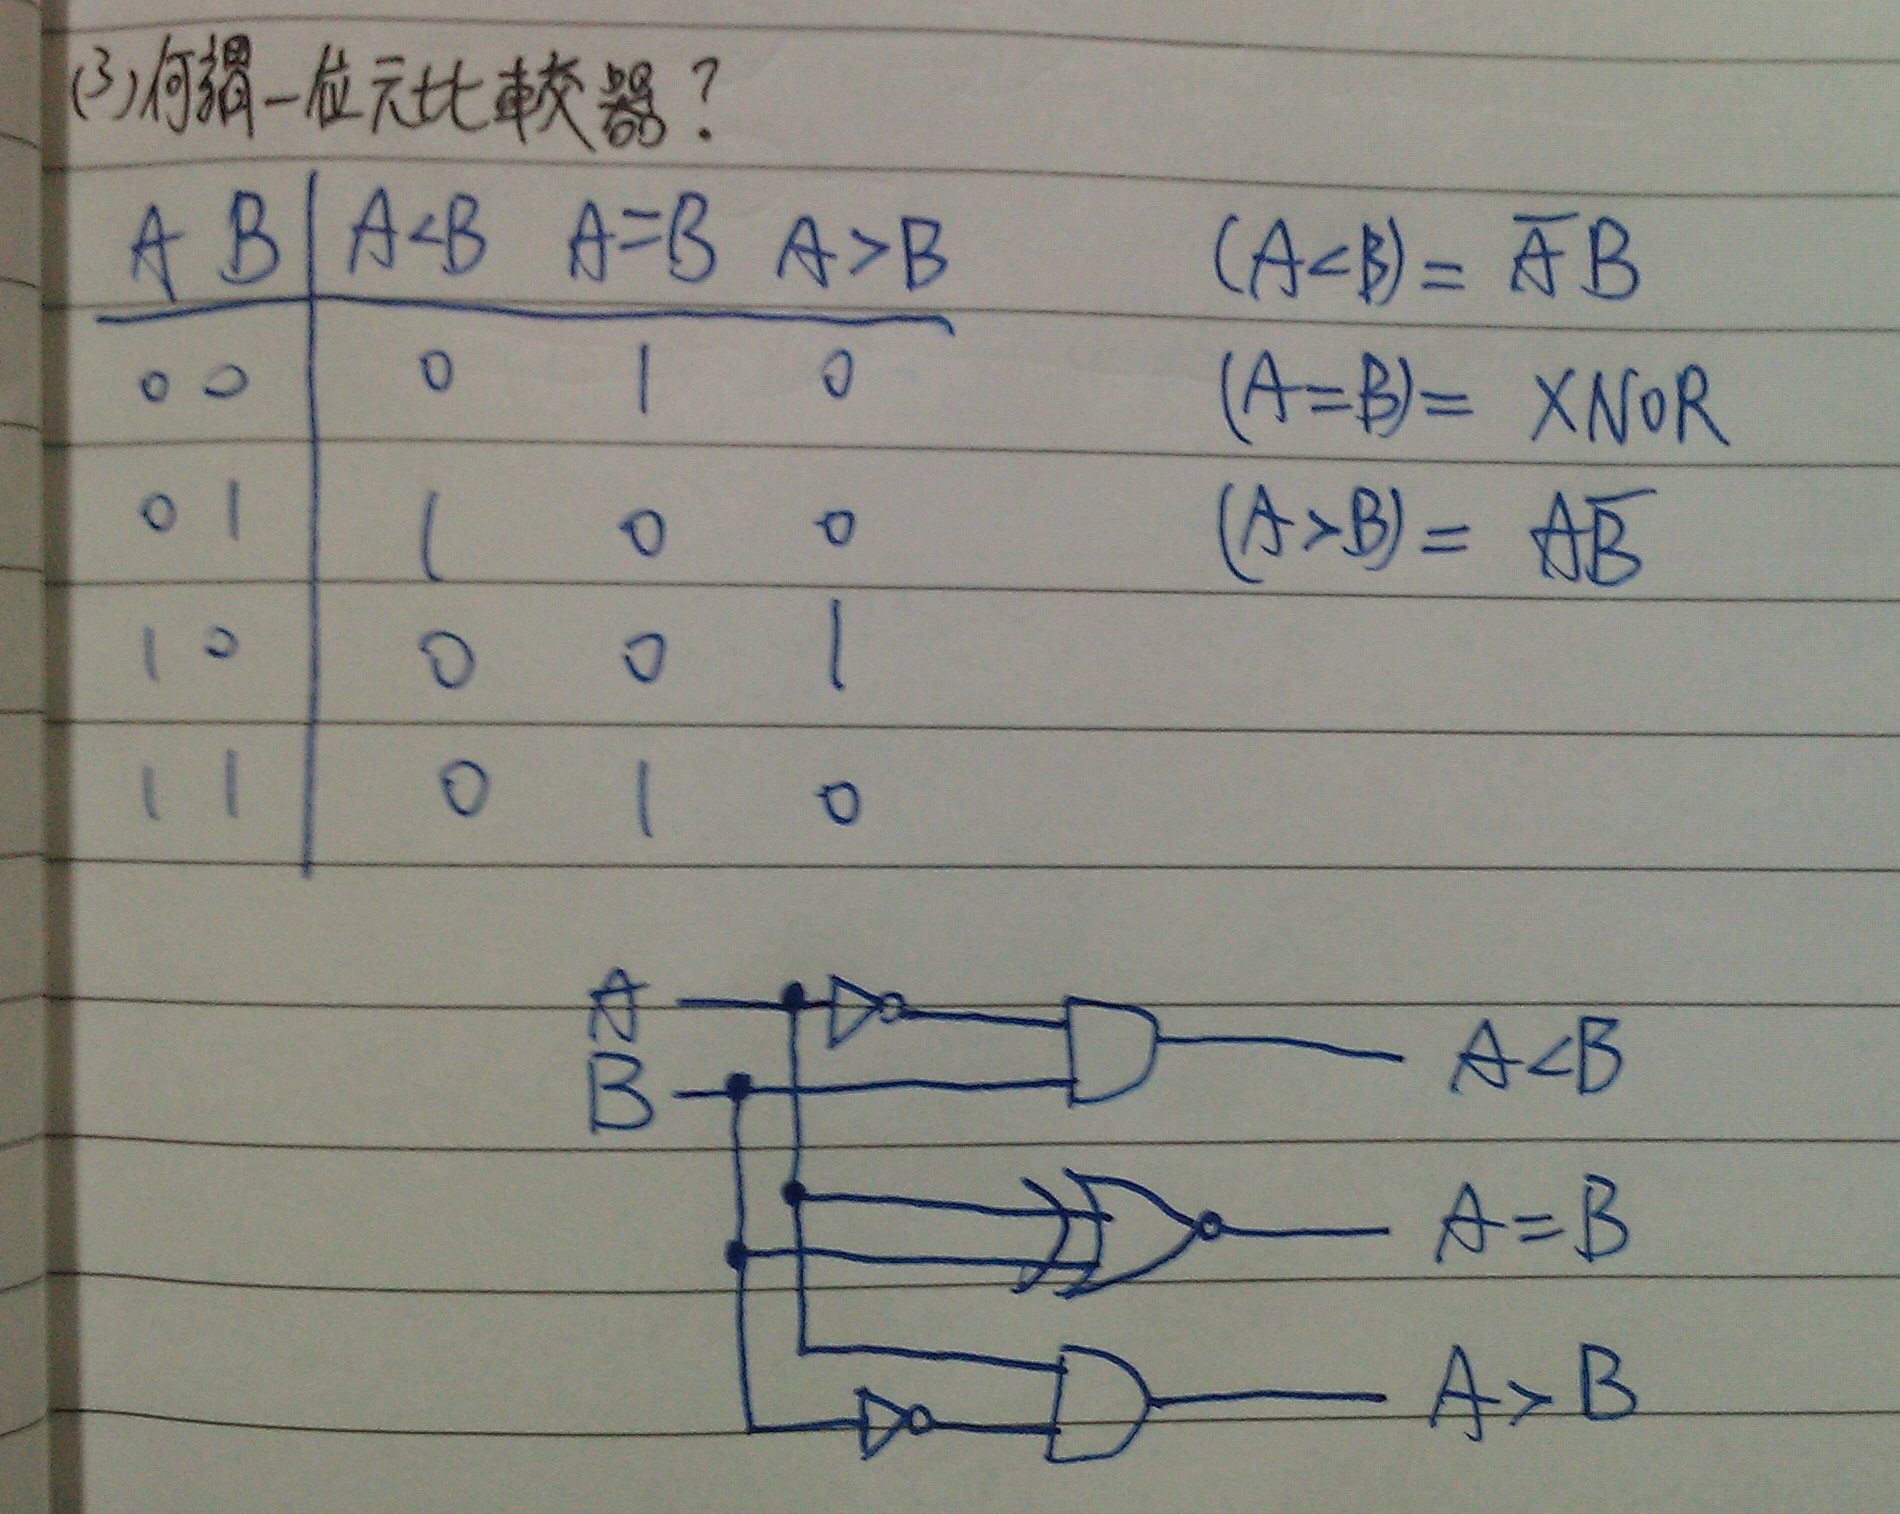 (3)何謂一位元比較器?
A B A<B A=B A>B
0 0 0 1 0
0 1 1 0 0
1 0 0 0 1
1 1 0 1 0
(A<B)= A̅B
(A=B)= XNOR
(A>B)= AB̅
A
B
A<B
A=B
A>B